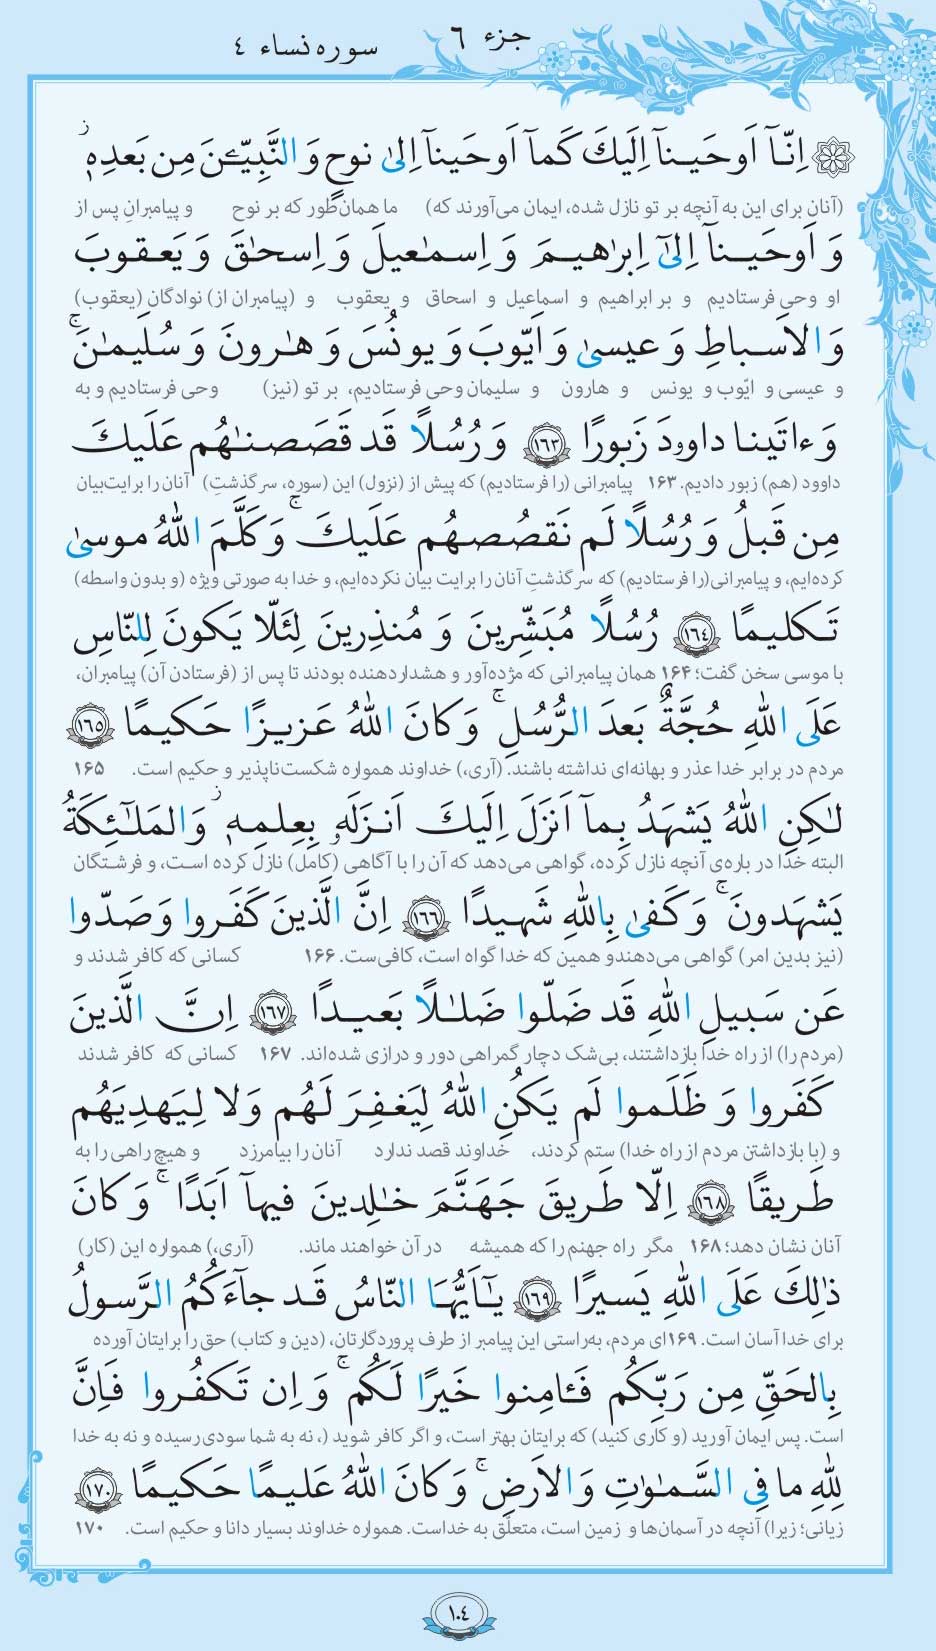 جزء ۶
سوره نساء ۴
اِنّـَآ اَوحَيـنآ اِلَيكَ كَمآ اَوحَينآ اِلىٰ نوحٍ وَ النَّبِيّـۧنَ مِن بَعدِهٖۚ
(آنان برای این به آنچه بر تو نازل شده، ایمان می‌آورند که) ما همان‌طور که بر نوح و پیامبرانِ پس از
وَ اَوحَيـنآ اِلىٰٓ اِبرٰهيـمَ وَ اِسـمٰعيلَ وَ اِسحٰقَ وَ يَعـقوبَ
او وحی فرستادیم و بر ابراهیم و اسماعیل و اسحاق و یعقوب و (پیامبران از) نوادگانِ (یعقوب)
وَ الاَسـباطِ وَ عيسىٰ وَ اَيّوبَ وَ يونُسَ وَ هٰـرونَ وَ سُلَيمٰـنَۚ
و عیسی و ایّوب و یونس و هارون و سلیمان وحی فرستادیم، بر تو (نیز) وحی فرستادیم و به
وَ ءاتَينا داوودَ زَبورًا ﴿١٦٣﴾ وَ رُسُلًا قَد قَصَصنـٰهُم عَلَيكَ
داوود (هم) زبور دادیم. ۱۶۳ پیامبرانی (را فرستادیم) که پیش از (نزول) این (سوره، سرگذشتِ) آنان را برایت‌بیان
مِن قَبلُ وَ رُسُلًا لَم نَقصُصهُم عَلَيكَۚ وَ كَلَّمَ اللّٰهُ موسىٰ
کرده‌ایم، و پیامبرانی(را فرستادیم) که سرگذشتِ آنان را برایت بیان نکرده‌ایم، و خدا به صورتی ویژه (و بدون واسطه)
تَـكليـمًا ﴿١٦٤﴾ رُسُلًا مُبَشِّرينَ وَ مُنذِرينَ لِئَلّا يَكونَ لِلنّاسِ
با موسی سخن گفت؛ ۱۶۴ همان پیامبرانی که مژده‌آور و هشداردهنده بودند تا پس از (فرستادن آن) پیامبران،
عَلَى اللّٰهِ حُجَّةٌ بَعدَ الرُّسُلِۚ وَ كانَ اللّٰهُ عَزيـزًا حَكيمًا ﴿١٦٥﴾
مردم در برابر خدا عذر و بهانه‌ای نداشته باشند. (آری،) خداوند همواره شکست‌ناپذیر و حکیم است. ۱۶۵
لٰـكِنِ اللّٰهُ يَشهَدُ بِمآ اَنزَلَ اِلَيكَ اَنزَلَهٗ بِعِلمِهٖۚ وَ المَلٰٓئِكَةُ
البته خدا در باره‌ی آنچه نازل کرده، گواهی می‌دهد که آن را با آگاهی (کامل) نازل کرده است، و فرشتگان
يَشهَدونَۚ وَ كَفىٰ بِاللّٰهِ شَهيدًا ﴿١٦٦﴾ اِنَّ الَّذينَ كَفَروا وَ صَدّوا
(نیز بدین امر) گواهی می‌دهندو همین که خدا گواه است، کافی‌ست. ۱۶۶ کسانی که کافر شدند و
عَن سَبيلِ اللّٰهِ قَد ضَلّوا ضَلٰـلًا بَعيـدًا ﴿١٦٧﴾ اِنَّ الَّذينَ
(مردم را) از راه خدا بازداشتند، بی‌شک دچار گمراهی دور و درازی شده‌اند. ۱۶۷ کسانی که کافر شدند
كَفَروا وَ ظَلَموا لَم يَكُنِ اللّٰهُ لِيَغفِـرَ لَهُم وَلا لِيَهدِيَهُم
و (با بازداشتن مردم از راه خدا) ستم کردند، خداوند قصد ندارد آنان را بیامرزد و هیچ راهی را به
طَريقًا ﴿١٦٨﴾ اِلّا طَريقَ جَهَنَّمَ خٰـلِدينَ فيهآ اَبَدًاۚ وَ كانَ
آنان نشان دهد؛ ۱۶۸ مگر راه جهنم را که همیشه در آن خواهند ماند. (آری،) همواره این (کار)
ذٰلِكَ عَلَى اللّٰهِ يَسيرًا ﴿١٦٩﴾ يـٰٓاَيُّهَا النّاسُ قَـد جآءَكُمُ الرَّسولُ
برای خدا آسان است. ۱۶۹ ای مردم، به‌راستی این پیامبر از طرف پروردگارتان، (دین و کتاب) حق را برایتان آورده
بِالحَقِّ مِن رَبِّكُم فَـٔامِنوا خَيرًا لَكُمۚ وَ اِن تَكفُروا فَاِنَّ
است. پس ایمان آورید (و کاری کنید) که برایتان بهتر است، و اگر کافر شوید (، نه به شما سودی رسیده و نه به خدا
لِلّٰهِ ما فِى السَّـمٰوٰتِ وَ الاَرضِۚ وَ كانَ اللّٰهُ عَليـمًا حَكيمًا ﴿١٧٠﴾
زیانی؛ زیرا) آنچه در آسمان‌ها و زمین است، متعلّق به خداست. همواره خداوند بسیار دانا و حکیم است. ۱۷۰
١٠٤